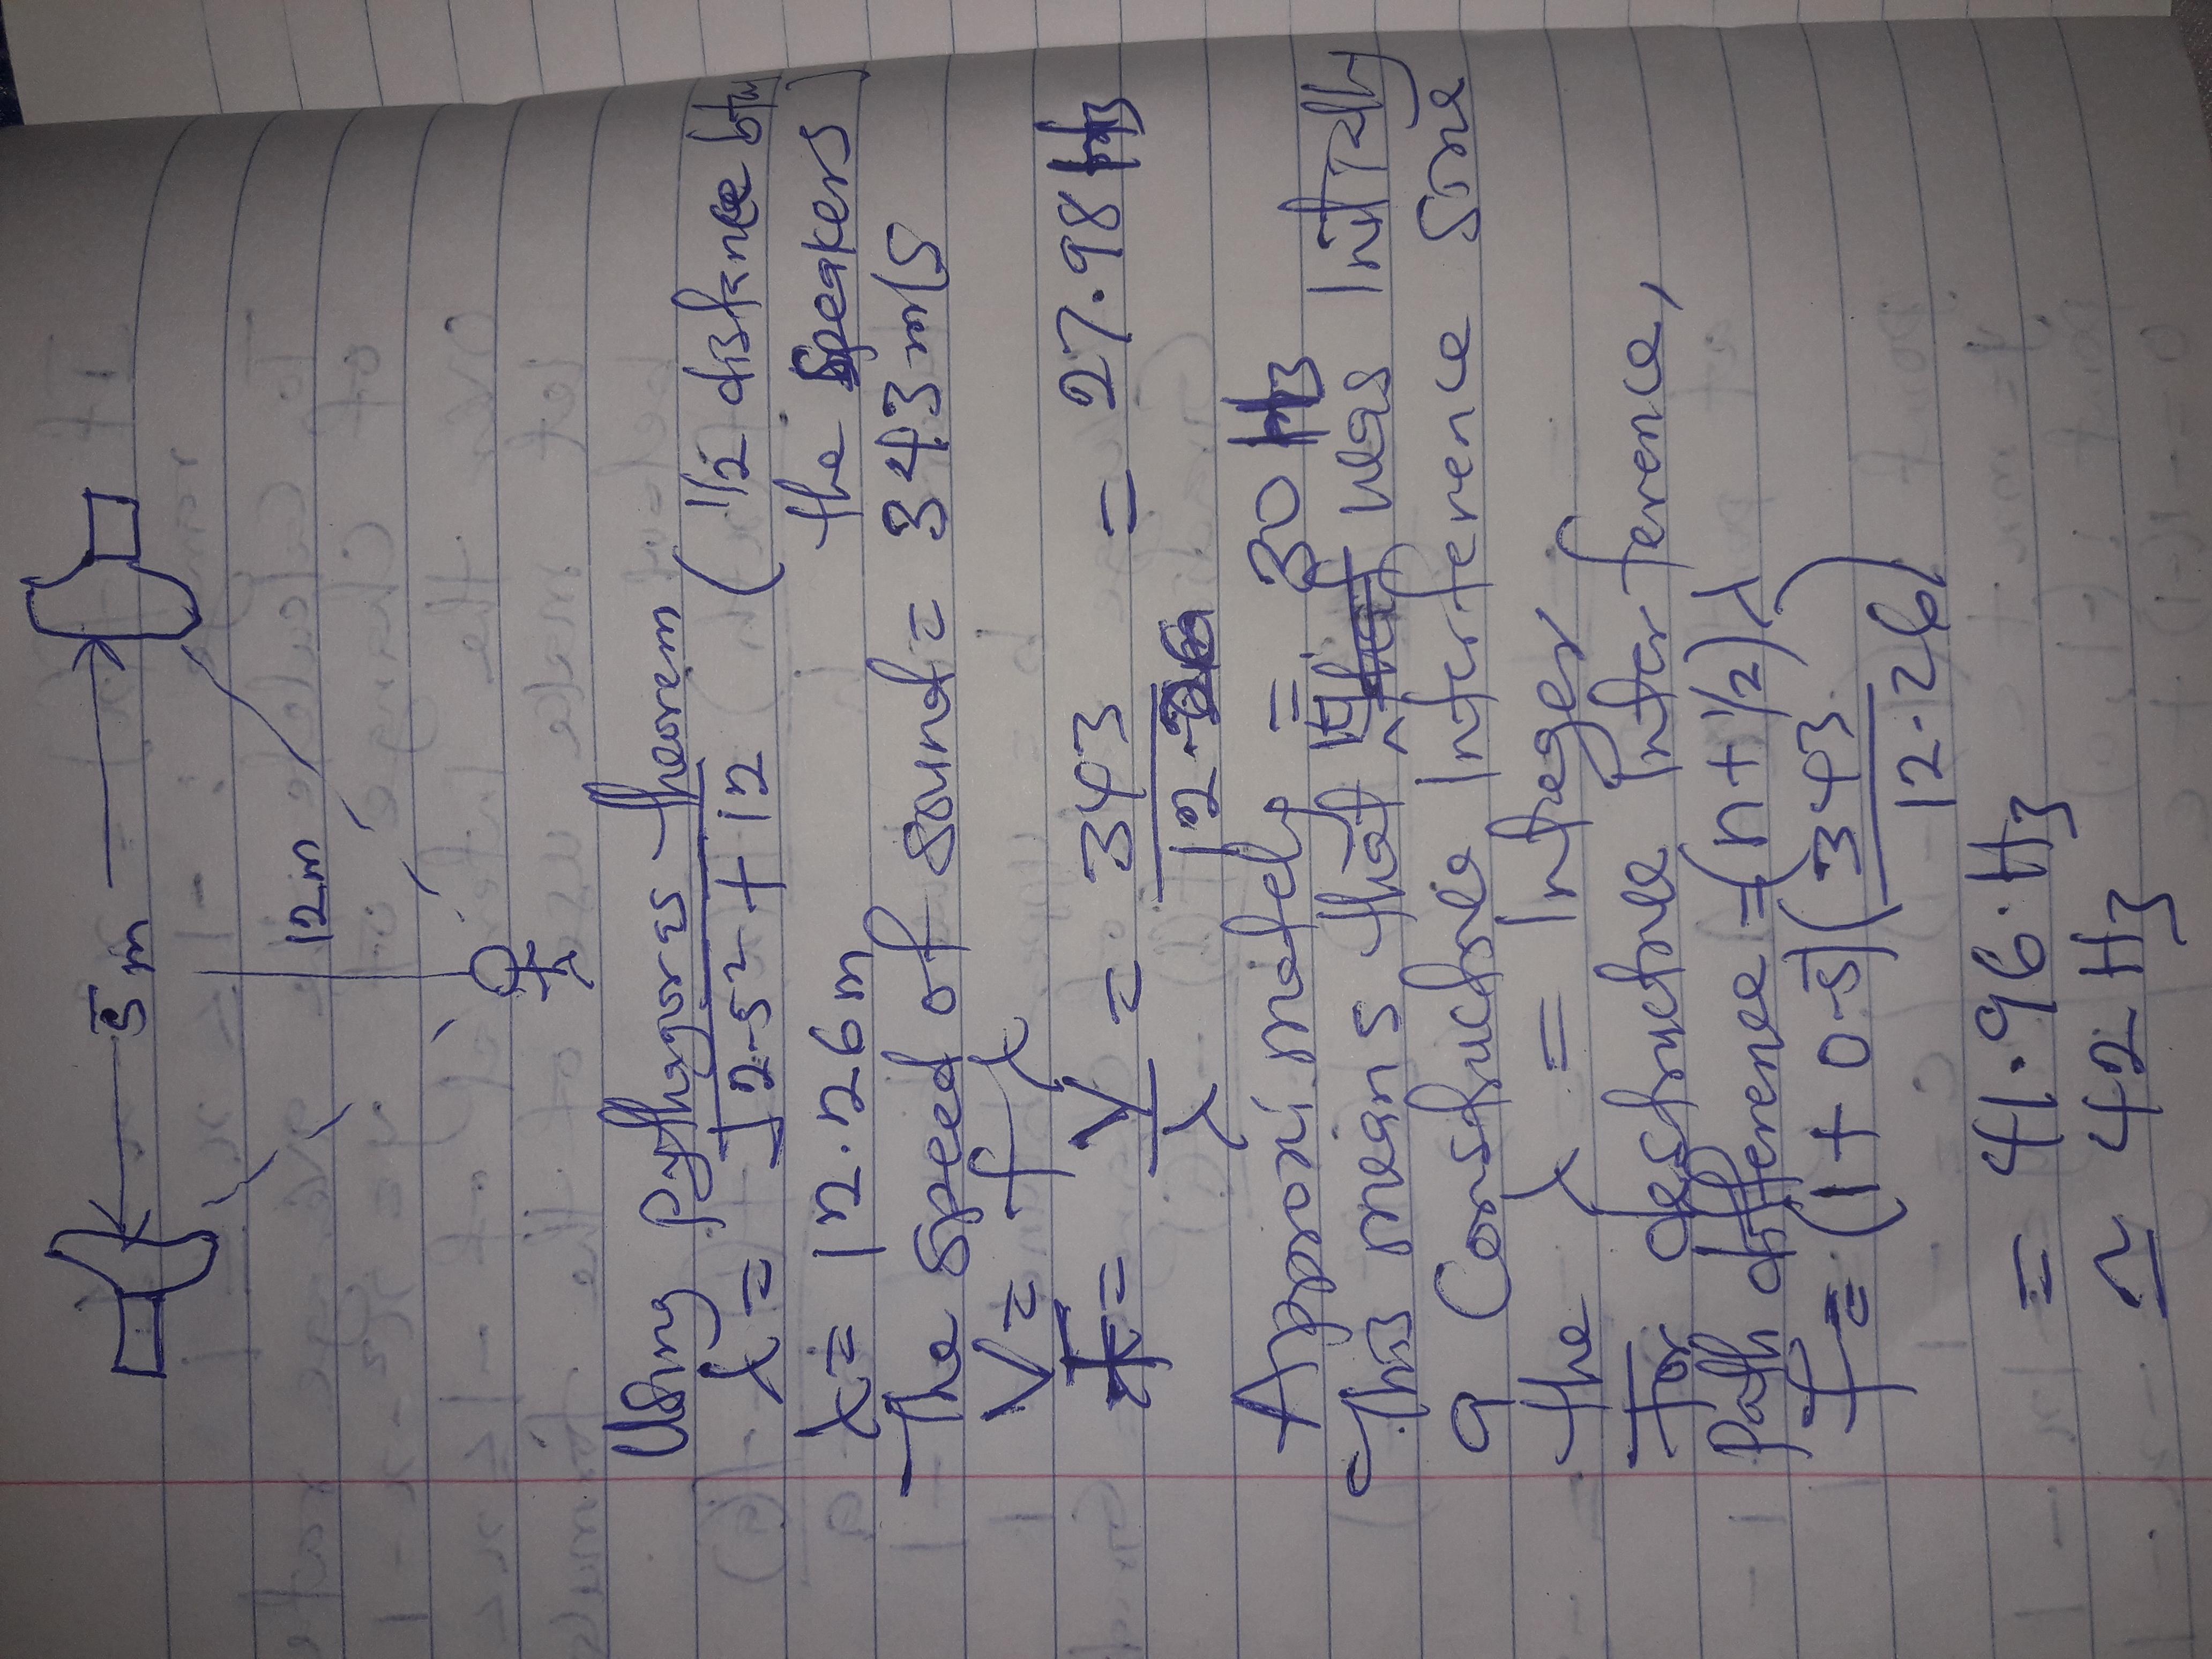 5m
12m
Using Pythagoras theorem (1/2 distance btw
λ = √2.5² + 12 the speakers)
λ = 12.26m
The speed of sound = 343 m/s
V = fλ
f = V/λ = 343/12.26 = 27.98 Hz
Approximately = 30 Hz
This means that it was initially
a Constructive Interference since
the λ = Integer
For destructive Interference,
Path difference = (n + 1/2)λ
f = (1 + 0.5)(343/12.26)
= 41.96 Hz
≃ 42 Hz